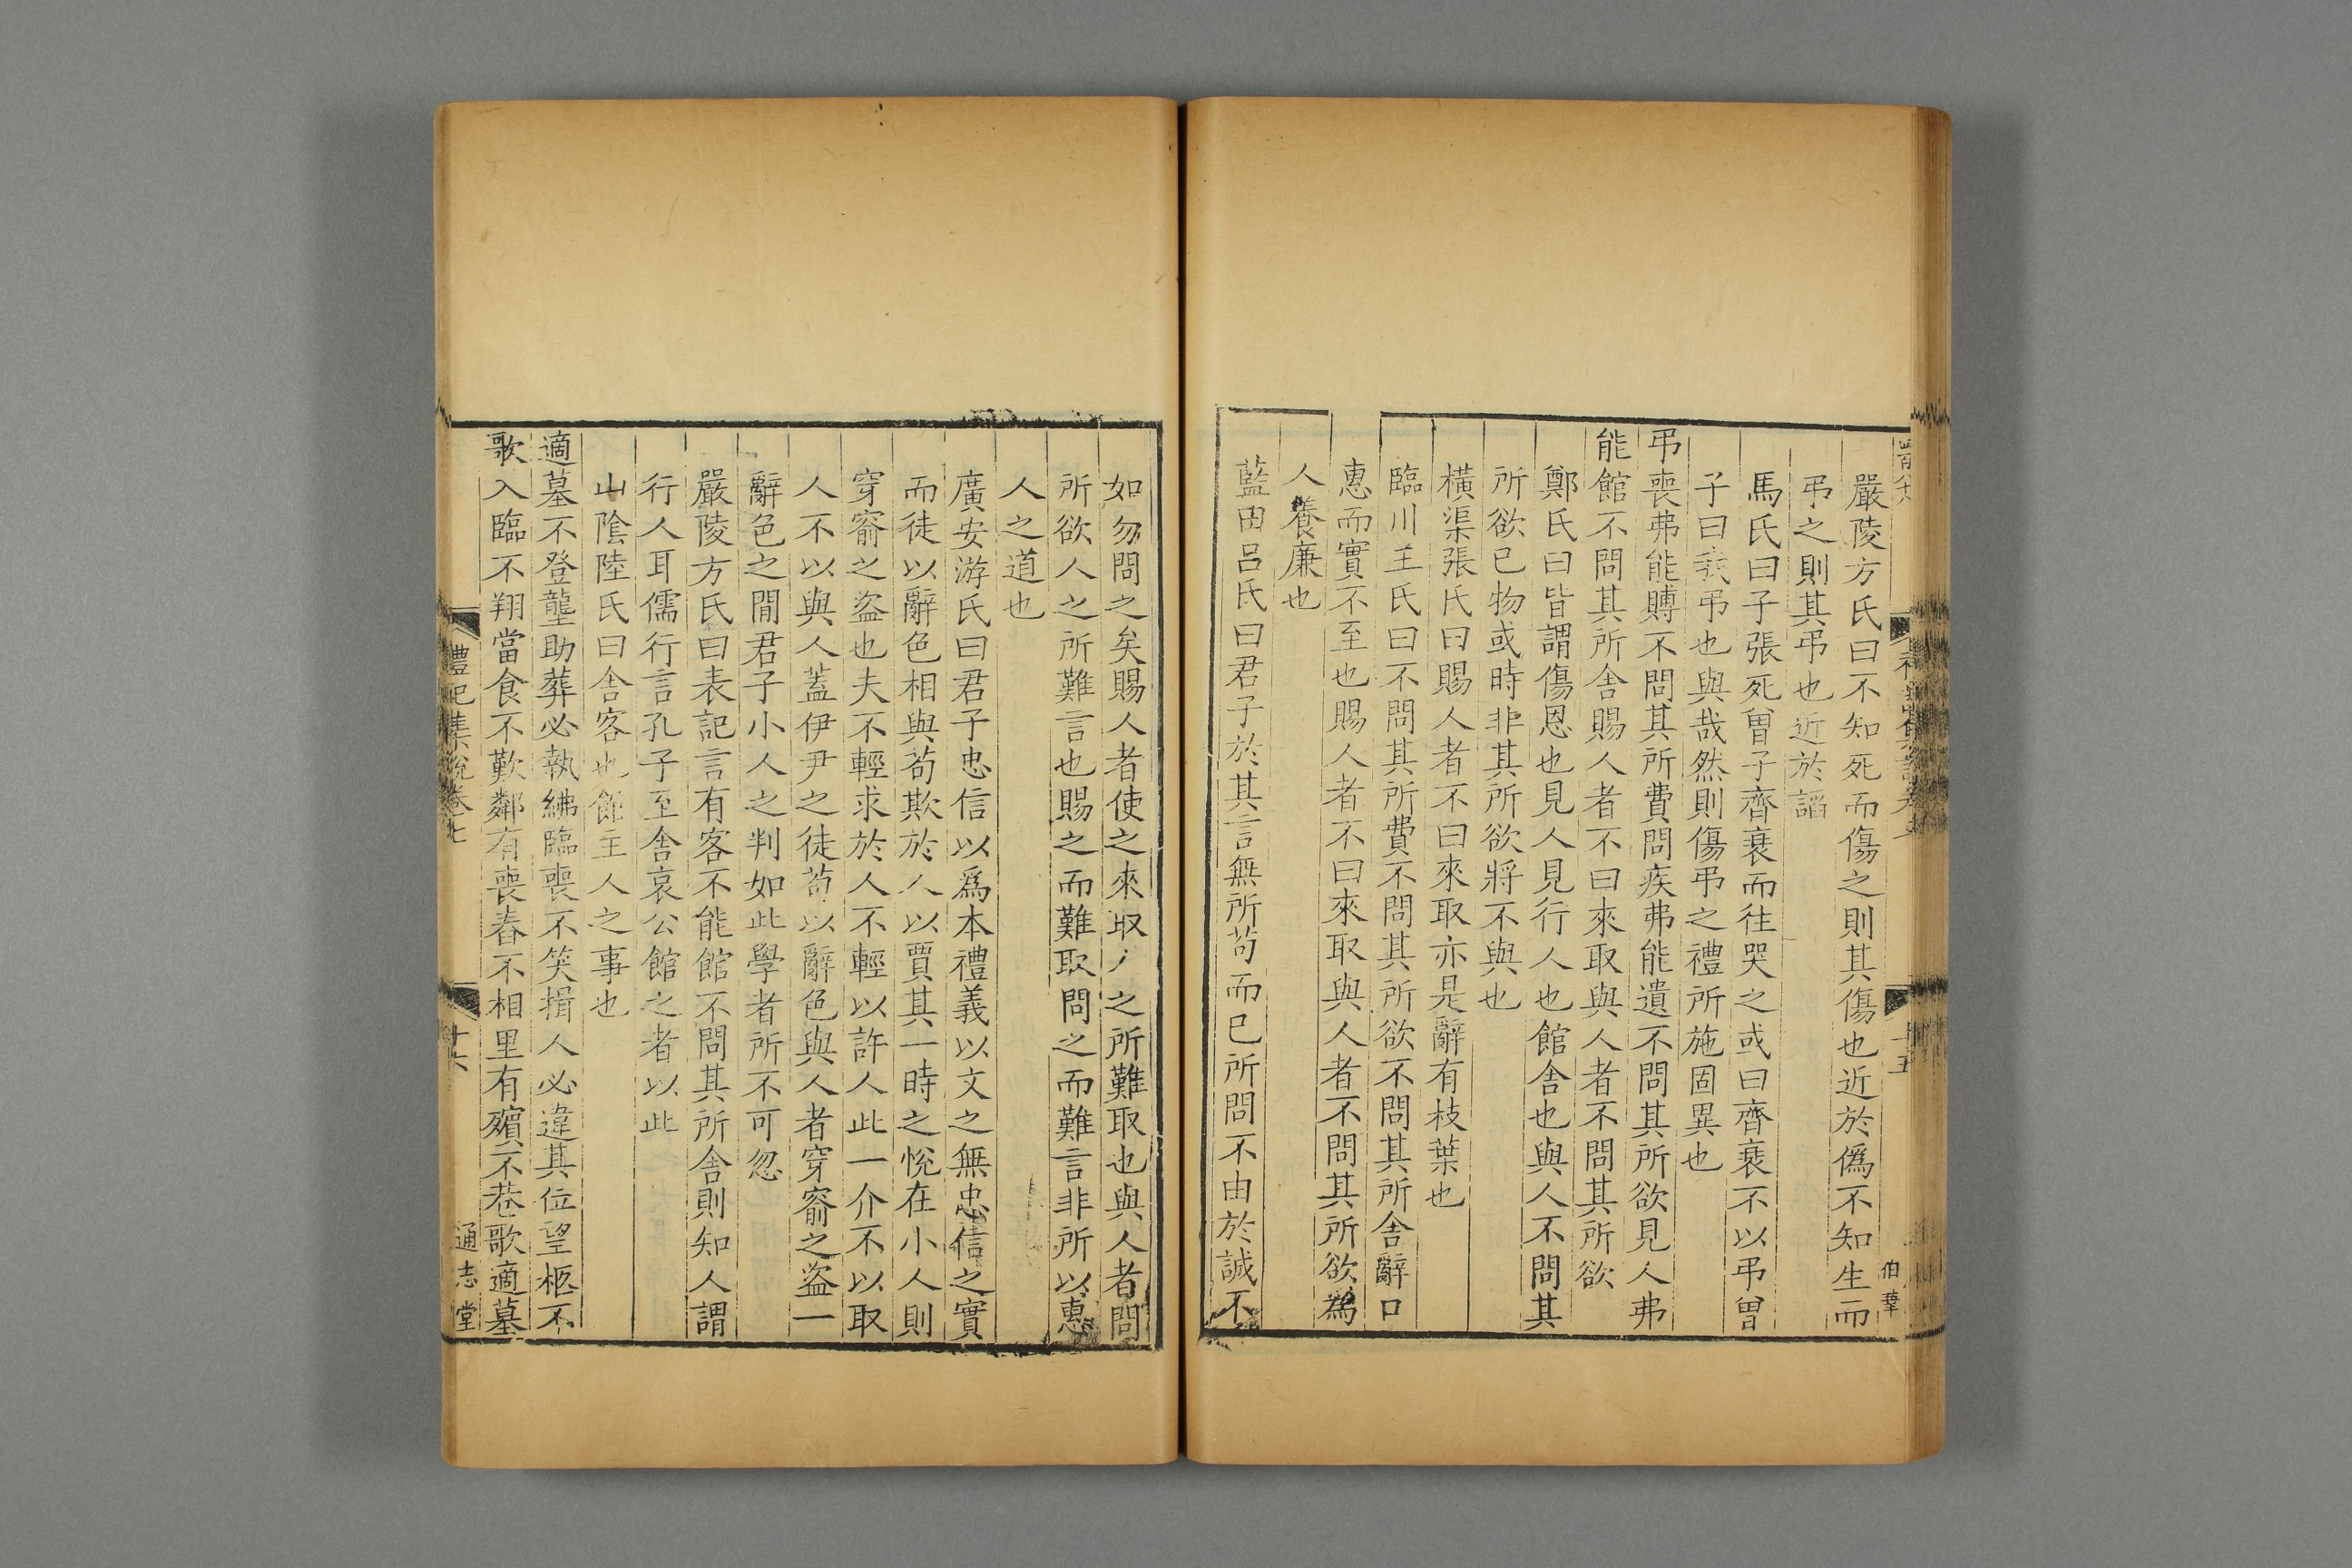 嚴陵方氏曰不知死而傷之則其傷也近於僞不知生而
弔之則其弔也近於謟
馬氏曰子張死曾子齊衰而往哭之或曰齊衰不以弔曾
子曰我弔也與哉然則傷弔之禮所施固異也
弔喪弗能賻不問其所費問疾弗能遺不問其所欲見人弗
能館不問其所舍賜人者不曰來取與人者不問其所欲
鄭氏曰皆謂傷恩也見人見行人也館舍也與人不問其
所欲已物或時非其所欲將不與也
橫渠張氏曰賜人者不曰來取亦是辭有枝葉也
臨川王氏曰不問其所費不問其所欲不問其所舍辭口
惠而實不至也賜人者不曰來取與人者不問其所欲爲
人養廉也
藍田呂氏曰君子於其言無所苟而已所問不由於誠不
伯華
如勿問之矣賜人者使之來取之所難取也與人者問
所欲人之所難言也賜之而難取問之而難言非所以惠
人之道也
廣安游氏曰君子忠信以爲本禮義以文之無忠信之實
而徒以辭色相與苟欺於人以賈其一時之悅在小人則
穿窬之盜也夫不輕求於人不輕以許人此一介不以取
人不以與人蓋伊尹之徒苟以辭色與人者穿窬之盜一
辭色之間君子小人之判如此學者所不可忽
嚴陵方氏曰表記言有客不能館不問其所舍則知人謂
行人耳儒行言孔子至舍哀公館之者以此
山陰陸氏曰舍客也館主人之事也
適墓不登壟助葬必執紼臨喪不笑揖人必違其位望柩不
歌入臨不翔當食不歎鄰有喪舂不相里有殯不巷歌適墓
禮記集說卷七
十六
通志堂